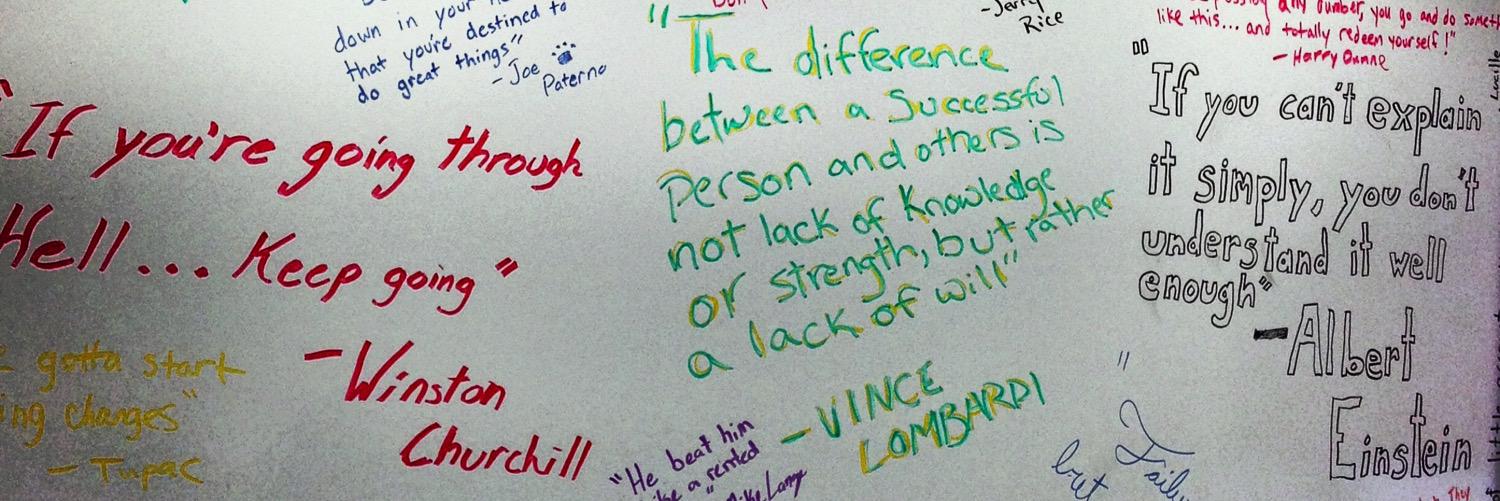 down in your
that you're destined to
do great things"
- Joe
Paterno
"If you're going through
Hell... Keep going"
-Winston
Churchill
gotta start
changes"
- Tupac
"The difference
between a Successful
Person and others is
not lack of Knowledge
or strength, but rather
a lack of will"
-VINCE
LOMBARDI
"He beat him
a rented
-Jerry
Rice
any number, you go and do
like this... and totally redeen yourself!"
- Harry Dunne
"If you can't explain
it simply, you don't
understand it well
enough"
-Albert
Einstein
"
but
They
Lucille